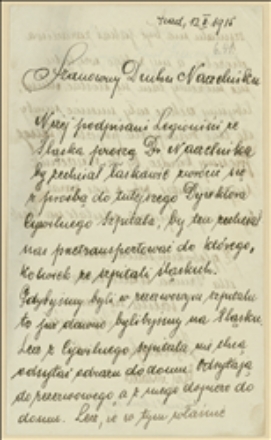 12 X 1915
Szanowny Druhu Naczelniku
Niżej podpisani Legioniści ze
Śląska proszą Dr Naczelnika
by zechciał łaskawie zwrócić się
z prośbą do tutejszego Dyrektora
Cywilnego Szpitala, by ten zechciał
nas przetransportować do którego-
kolwiek ze szpitali śląskich.
Gdybyśmy byli w rezerwowym szpitalu
to już dawno bylibyśmy na Śląsku.
Lecz z Cywilnego szpitala nie chcą
odsyłać odrazu do domu. Odsyłają
do rezerwowego, a z niego dopiero do
domu. Lecz, że w tym właśnie